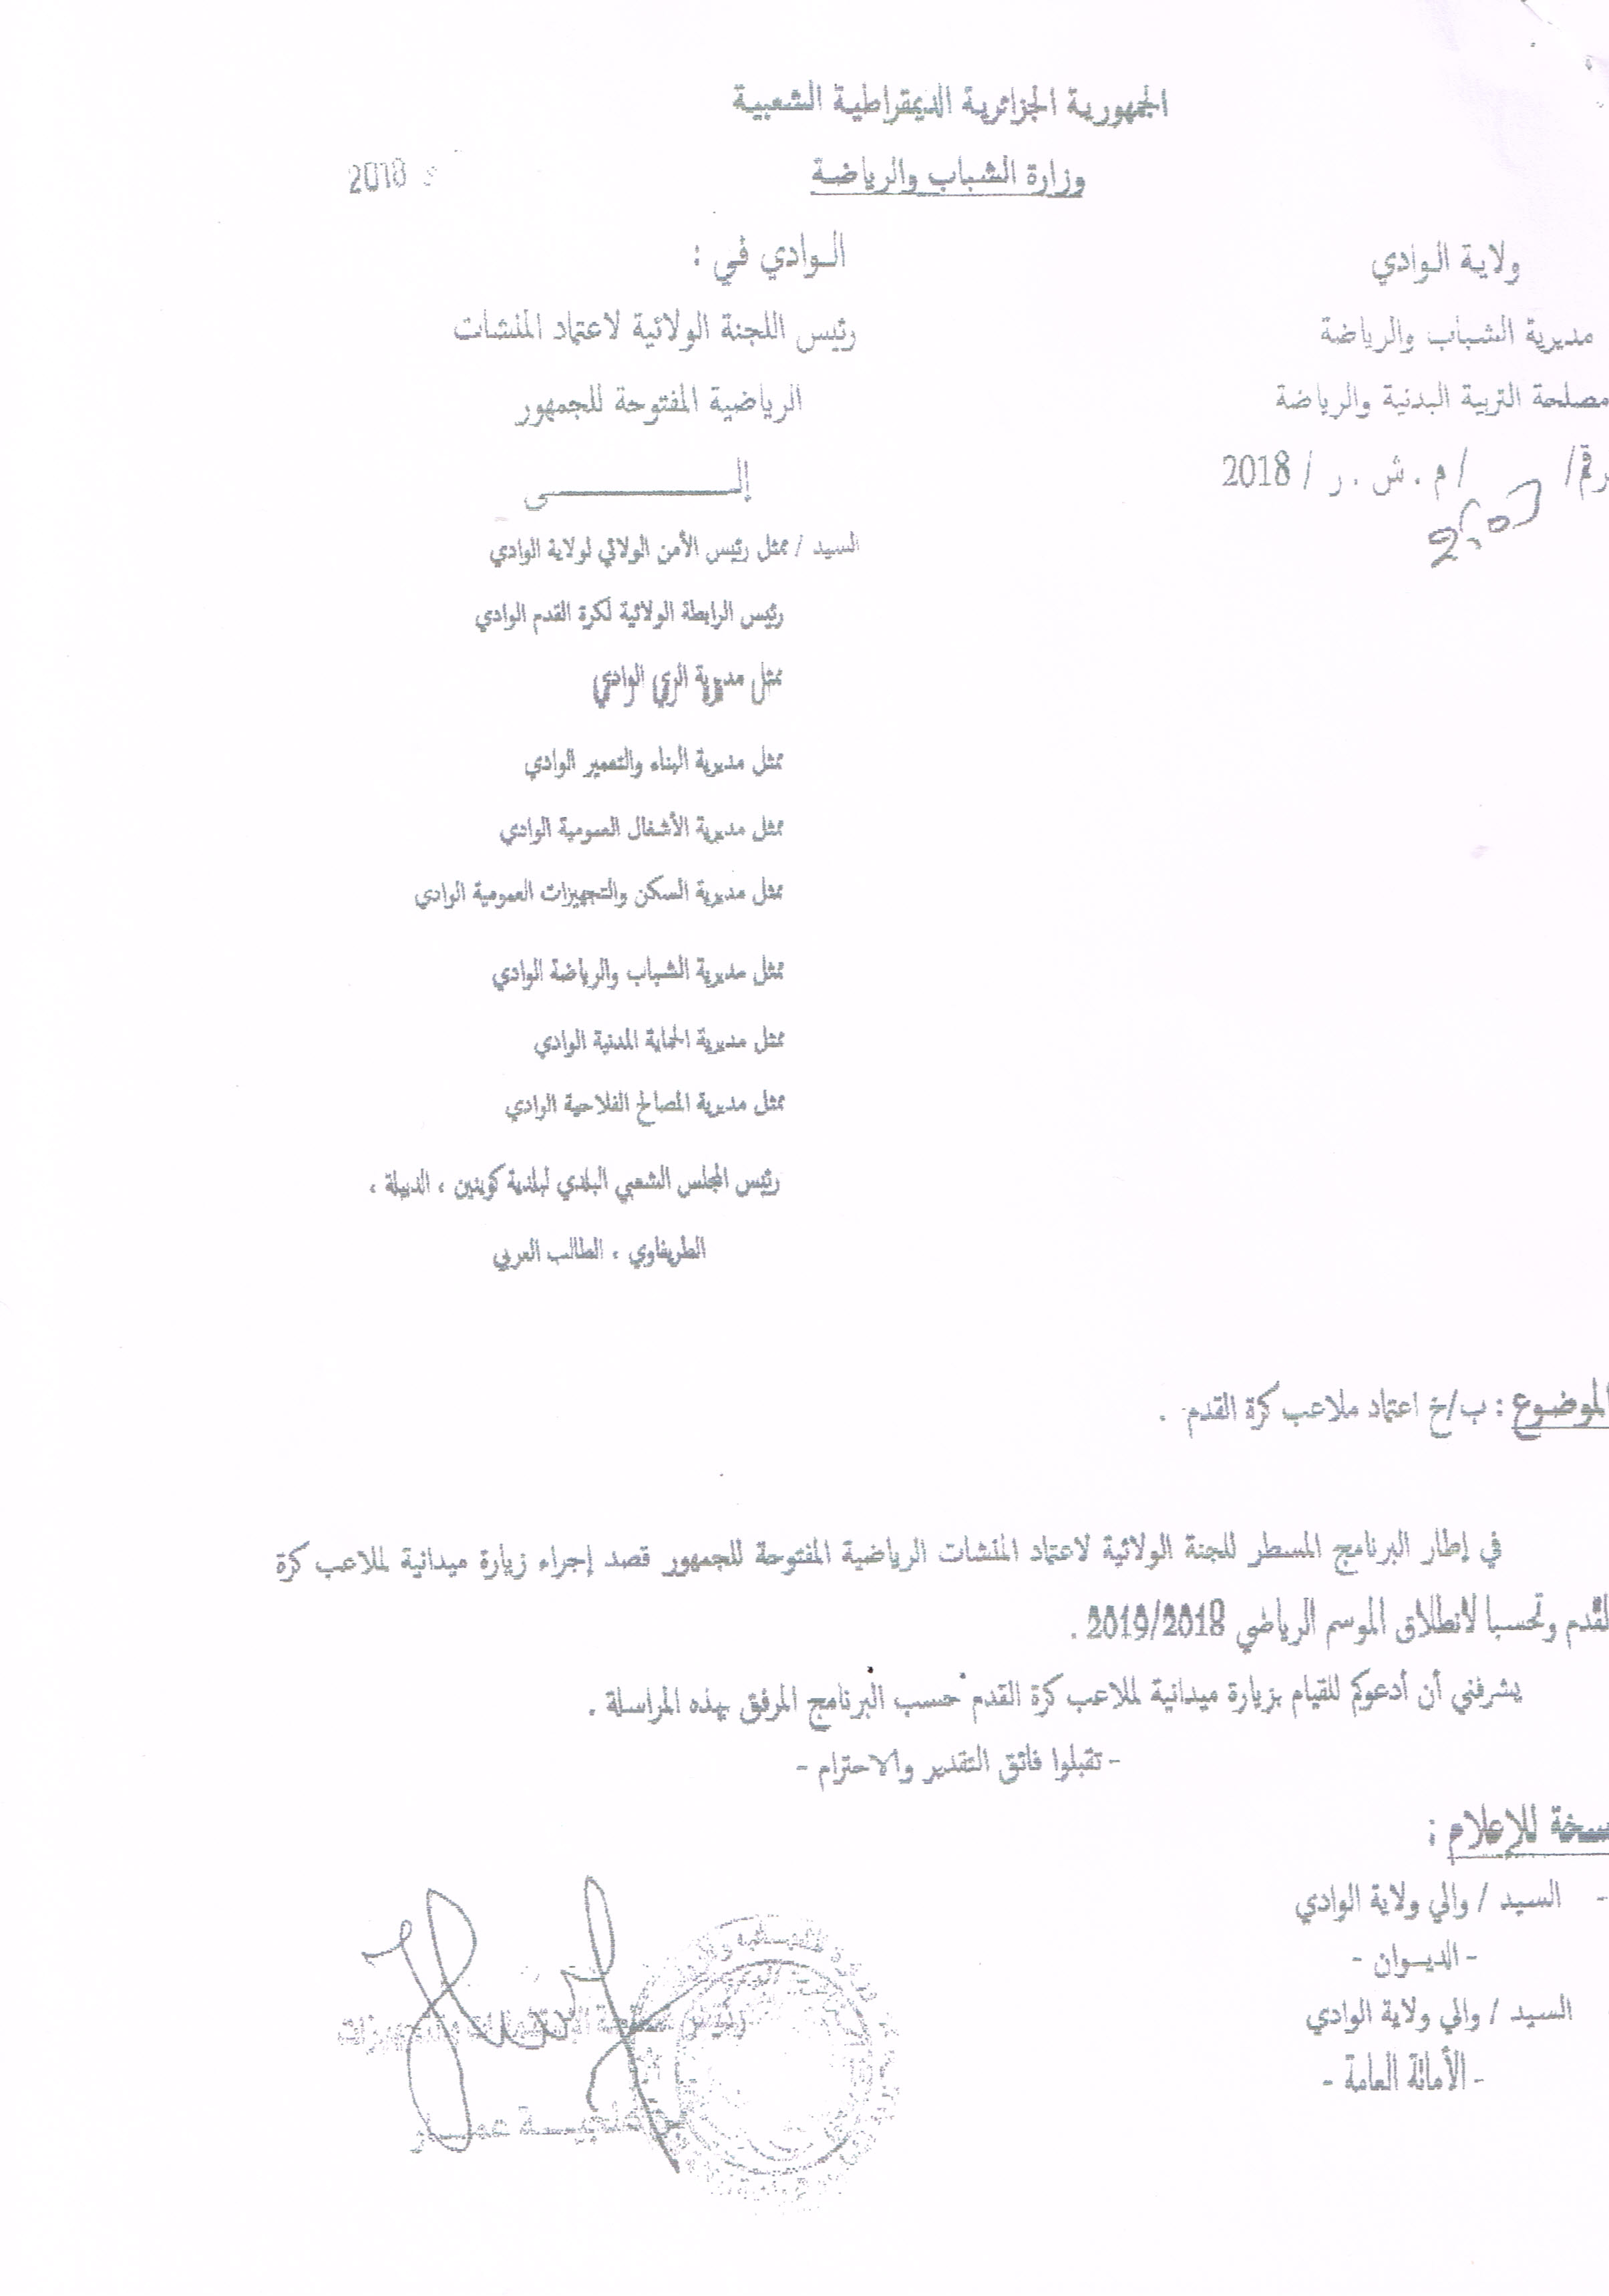 الجمهورية الجزائرية الديمقراطية الشعبية
وزارة الشباب والرياضة
2018
ولاية الوادي
الوادي في :
مديرية الشباب والرياضة
رئيس اللجنة الولائية لاعتماد المنشات
مصلحة التربية البدنية والرياضة
الرياضية المفتوحة للجمهور
رقم/ / م . ش . ر / 2018
إلــــــــى
السيد / ممثل رئيس الأمن الولائي لولاية الوادي
رئيس الرابطة الولائية لكرة القدم الوادي
ممثل مديرية الري الوادي
ممثل مديرية البناء والتعمير الوادي
ممثل مديرية الأشغال العمومية الوادي
ممثل مديرية السكن والتجهيزات العمومية الوادي
ممثل مديرية الشباب والرياضة الوادي
ممثل مديرية الحماية المدنية الوادي
ممثل مديرية المصالح الفلاحية الوادي
رئيس المجلس الشعبي البلدي لبلدية كوينين ، الدبيلة ،
الطريفاوي ، الطالب العربي
الموضوع : ب/خ اعتماد ملاعب كرة القدم .
في إطار البرنامج المسطر للجنة الولائية لاعتماد المنشات الرياضية المفتوحة للجمهور قصد إجراء زيارة ميدانية لملاعب كرة
القدم وتحسبا لانطلاق الموسم الرياضي 2019/2018 .
يشرفني أن أدعوكم للقيام بزيارة ميدانية لملاعب كرة القدم حسب البرنامج المرفق بهذه المراسلة .
- تقبلوا فائق التقدير والاحترام -
نسخة للإعلام :
- السيد / والي ولاية الوادي
- الديـوان -
السيد / والي ولاية الوادي
- الأمانة العامة -